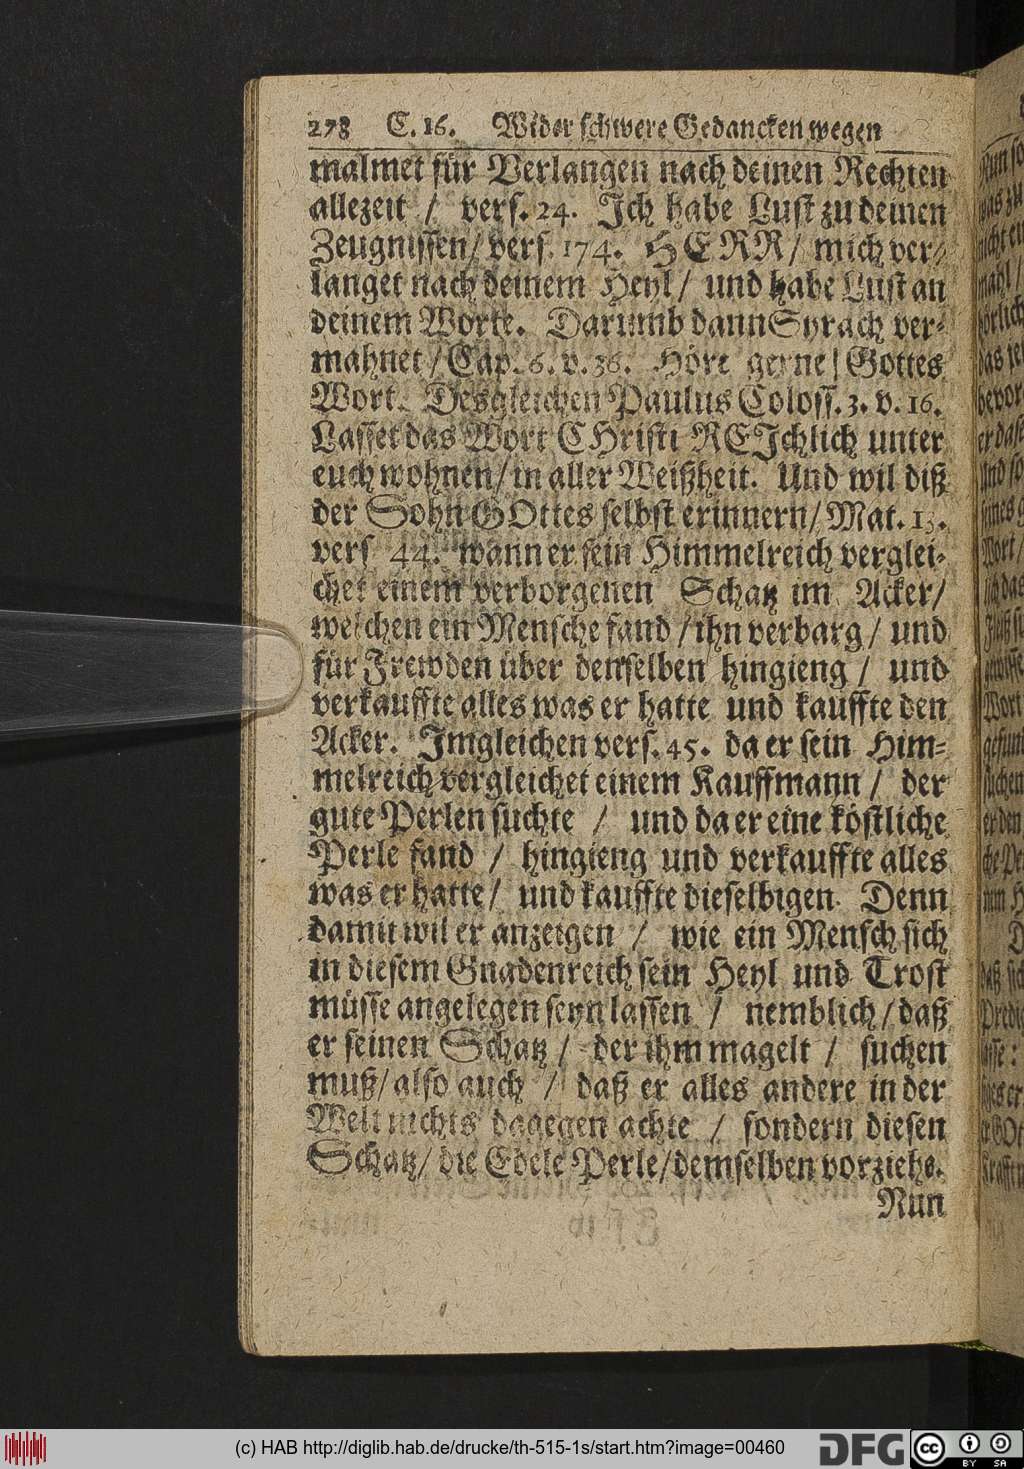 278 C. 16. Wider schwere Gedancken wegen
malmet für Verlangen nach deinen Rechten
allezeit / vers. 24. Jch habe Lust zu deinen
Zeugnissen/ vers. 174. HERR/ mich ver-
langet nach deinem Heyl/ und habe Lust an
deinem Worte. Darumb dann Syrach ver-
mahnet/ Cap. 6. v. 36. Höre gerne Gottes
Wort. Desgleichen Paulus Coloss. 3. v. 16.
Lasset das Wort CHristi REJchlich unter
euch wohnen/ in aller Weißheit. Und wil diß
der Sohn GOttes selbst erinnern/ Mat. 13.
vers 44. wann er sein Himmelreich verglei-
chet einem verborgenen Schatz im Acker/
welchen ein Mensche fand / ihn verbarg / und
für Frewden über denselben hingieng / und
verkauffte alles was er hatte und kauffte den
Acker. Jmgleichen vers. 45. da er sein Him-
melreich vergleichet einem Kauffmann / der
gute Perlen suchte / und da er eine köstliche
Perle fand / hingieng und verkauffte alles
was er hatte/ und kauffte dieselbigen. Denn
damit wil er anzeigen / wie ein Mensch sich
in diesem Gnadenreich sein Heyl und Trost
müsse angelegen seyn lassen / nemblich/ daß
er seinen Schatz / der ihm magelt / suchen
muß/ also auch / daß er alles andere in der
Welt nichts dagegen achte / sondern diesen
Schatz/ die Edele Perle/ demselben vorziehe.
Nun
(c) HAB http://diglib.hab.de/drucke/th-515-1s/start.htm?image=00460
DFG
cc BY SA